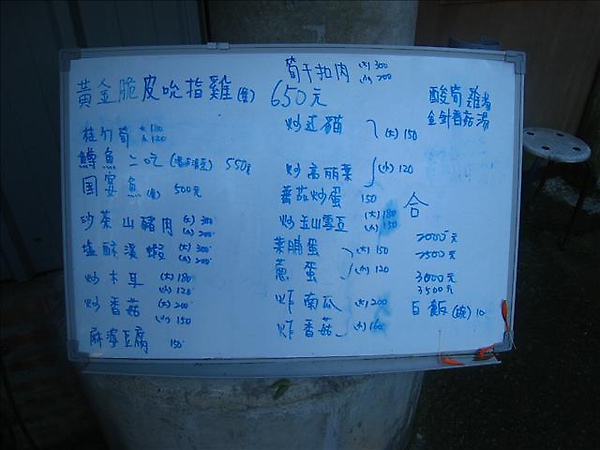 筍干扣肉 (大)300 (小)200
黃金脆皮吮指雞(隻) 650元
酸筍雞湯
金針香菇湯
桂竹筍 大180 小120
鱒魚二吃 550元
国宴魚 500元
炒茶山豬肉 (大)300 (小)200
塩酥溪蝦 (大)300 (小)200
炒木耳 (大)180 (小)120
炒香菇 (大)200 (小)150
麻婆豆腐 150
炒过猫 (大)150
炒高丽菜 (小)120
蕃茄炒蛋 150
炒玉山雪豆 (大)180 (小)150
菜脯蛋 (大)150
蔥蛋 (小)120
炸南瓜 (大)200
炸香菇 (小)160
合
2000元
2500元
3000元
3500元
白飯(碗)10